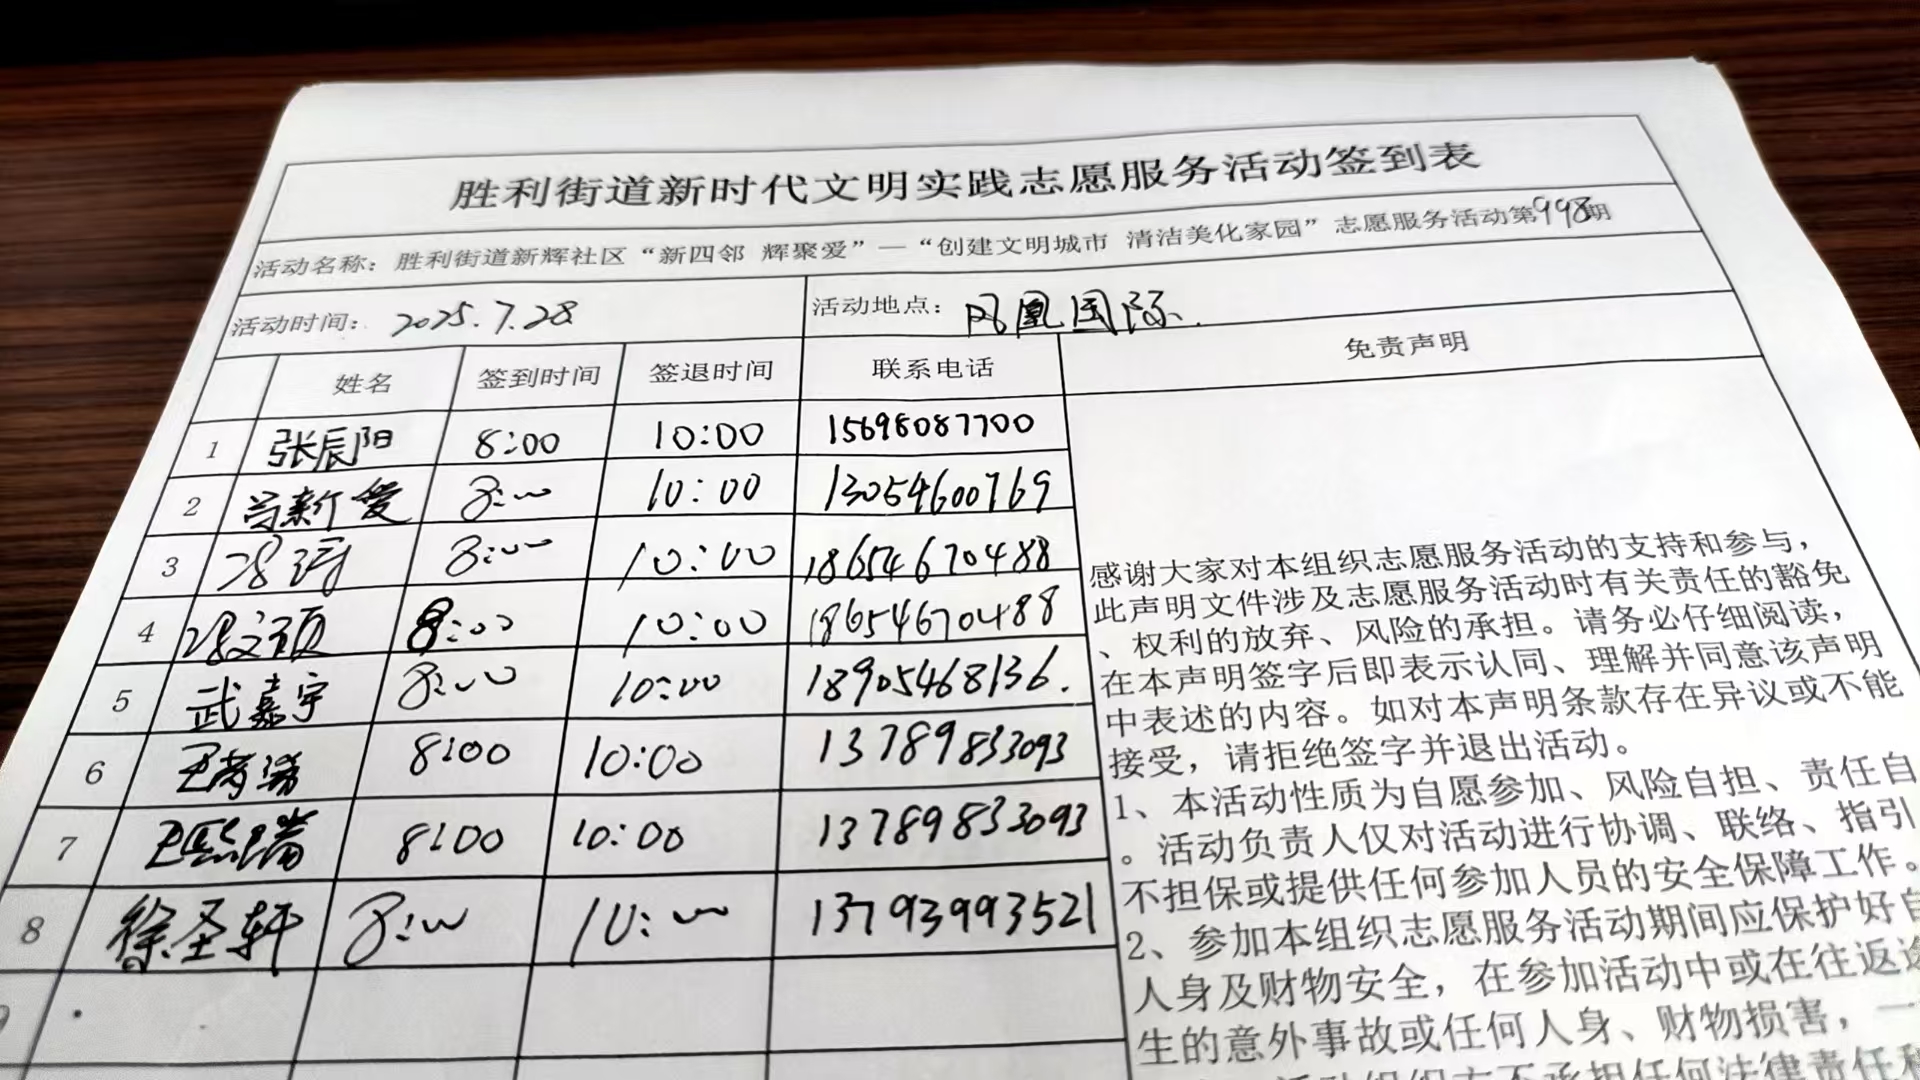 胜利街道新时代文明实践志愿服务活动签到表
活动名称：胜利街道新辉社区“新四邻 辉聚爱”—“创建文明城市 清洁美化家园”志愿服务活动第998期
活动时间： 2025.7.28 活动地点： 凤凰国际.
姓名 签到时间 签退时间 联系电话 免责声明
1 张辰阳 8:00 10:00 15698087700
2 8:00 10:00 13054600769
3 8:00 10:00 18654670488
4 8:00 10:00 18654670488
5 武嘉宇 8:00 10:00 18905468136.
6 8:00 10:00 13789833093
7 8:00 10:00 13789833093
8 徐圣轩 8:00 10:00 13793993521
9
感谢大家对本组织志愿服务活动的支持和参与，
此声明文件涉及志愿服务活动时有关责任的豁免
、权利的放弃、风险的承担。请务必仔细阅读，
在本声明签字后即表示认同、理解并同意该声明
中表述的内容。如对本声明条款存在异议或不能
接受，请拒绝签字并退出活动。
1、本活动性质为自愿参加、风险自担、责任自
。活动负责人仅对活动进行协调、联络、指引
不担保或提供任何参加人员的安全保障工作。
2、参加本组织志愿服务活动期间应保护好自
人身及财物安全，在参加活动中或在往返途
生的意外事故或任何人身、财物损害，一
活动组织方不承担任何法律责任